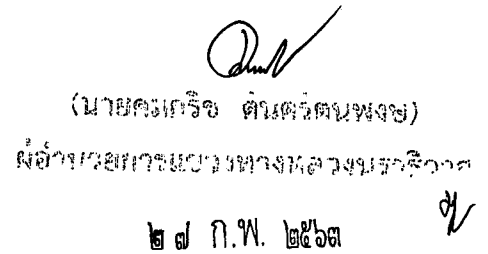 (นายคมเกริช ตันตรัตนพงษ์)
ผู้อำนวยการแขวงทางหลวงนราธิวาส
๒๗ ก.พ. ๒๕๖๓